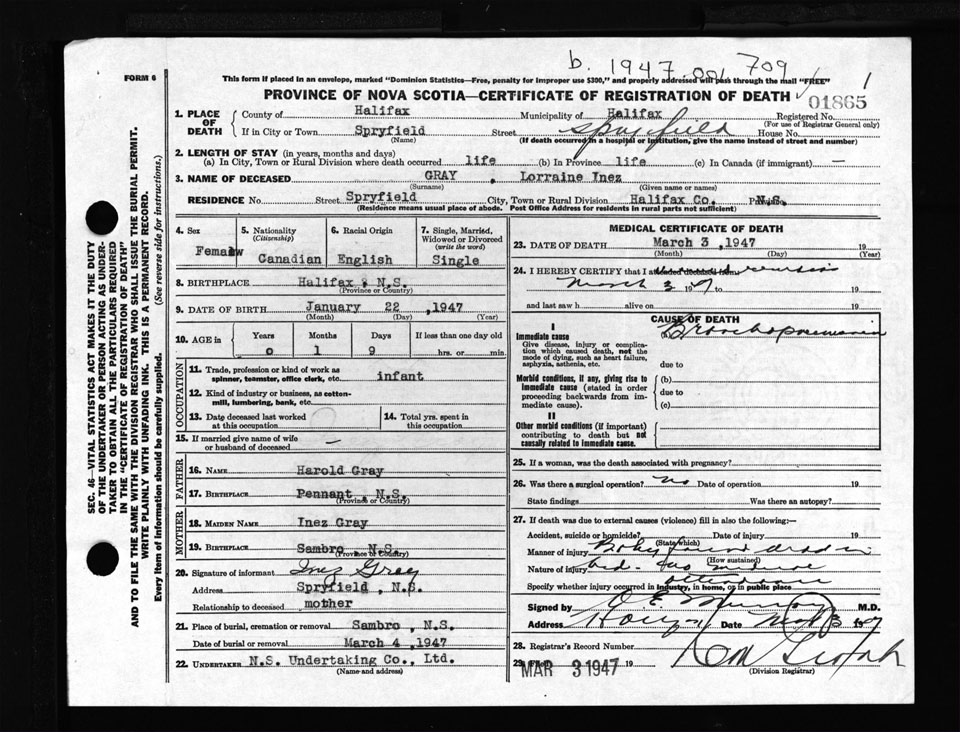 b. 1947-001 709
FORM 6
This form if placed in an envelope, marked "Dominion Statistics—Free, penalty for improper use $300," and properly addressed will pass through the mail "FREE"
PROVINCE OF NOVA SCOTIA—CERTIFICATE OF REGISTRATION OF DEATH
01865
1. PLACE OF DEATH County of Halifax Municipality of Halifax Registered No.
(For use of Registrar General only)
If in City or Town Spryfield Street Spryfield House No.
(Name) (If death occurred in a hospital or institution, give the name instead of street and number)
2. LENGTH OF STAY (in years, months and days)
(a) In City, Town or Rural Division where death occurred life (b) In Province life (c) In Canada (if immigrant) —
3. NAME OF DECEASED GRAY , Lorraine Inez
(Surname) (Given name or names)
RESIDENCE No. Street Spryfield City, Town or Rural Division Halifax Co. Province N.S.
(Residence means usual place of abode. Post Office Address for residents in rural parts not sufficient)
4. Sex 5. Nationality 6. Racial Origin 7. Single, Married, Widowed or Divorced
(Citizenship) (write the word)
Canadian English Single
8. BIRTHPLACE Halifax , N.S.
(Province or Country)
9. DATE OF BIRTH January 22 , 1947
(Month) (Day) (Year)
10. AGE in Years Months Days If less than one day old
0 1 9 hrs. or min.
OCCUPATION
11. Trade, profession or kind of work as spinner, teamster, office clerk, etc. infant
12. Kind of industry or business, as cotton-mill, lumbering, bank, etc.
13. Date deceased last worked at this occupation
14. Total yrs. spent in this occupation
15. If married give name of wife or husband of deceased —
FATHER
16. NAME Harold Gray
17. BIRTHPLACE Pennant , N.S.
(Province or Country)
MOTHER
18. MAIDEN NAME Inez Gray
19. BIRTHPLACE Sambro N.S.
(Province or Country)
20. Signature of informant Inez Gray
Address Spryfield , N.S.
Relationship to deceased mother
21. Place of burial, cremation or removal Sambro , N.S.
Date of burial or removal March 4 , 1947
22. UNDERTAKER N.S. Undertaking Co., Ltd.
(Name and address)
MEDICAL CERTIFICATE OF DEATH
23. DATE OF DEATH March 3 , 1947 19
(Month) (Day) (Year)
24. I HEREBY CERTIFY that I attended deceased from
March 3 19 47 19
and last saw h alive on 19
CAUSE OF DEATH
I
Immediate cause Bronchopneumonia
Give disease, injury or complication which caused death, not the mode of dying, such as heart failure, asphyxia, asthenia, etc.
due to
Morbid conditions, if any, giving rise to immediate cause (stated in order proceeding backwards from immediate cause).
(b)
due to
(c)
II
Other morbid conditions (if important) contributing to death but not causally related to immediate cause.
25. If a woman, was the death associated with pregnancy?
26. Was there a surgical operation? no Date of operation 19
State findings Was there an autopsy?
27. If death was due to external causes (violence) fill in also the following:—
Accident, suicide or homicide? Date of injury 19
(State which)
Manner of injury Baby found dead in
(How sustained)
Nature of injury bed. no medical
attendance
Specify whether injury occurred in industry, in home, or in public place
Signed by M.D.
Address Date 3 19 47
28. Registrar's Record Number
29. Filed MAR 3 1947 19
(Division Registrar)
SEC. 46—VITAL STATISTICS ACT MAKES IT THE DUTY
OF THE UNDERTAKER OR PERSON ACTING AS UNDER-
TAKER TO OBTAIN ALL THE PARTICULARS REQUIRED
IN THE "CERTIFICATE OF REGISTRATION OF DEATH"
AND TO FILE THE SAME WITH THE DIVISION REGISTRAR WHO SHALL ISSUE THE BURIAL PERMIT.
WRITE PLAINLY WITH UNFADING INK. THIS IS A PERMANENT RECORD.
Every item of information should be carefully supplied. (See reverse side for instructions.)